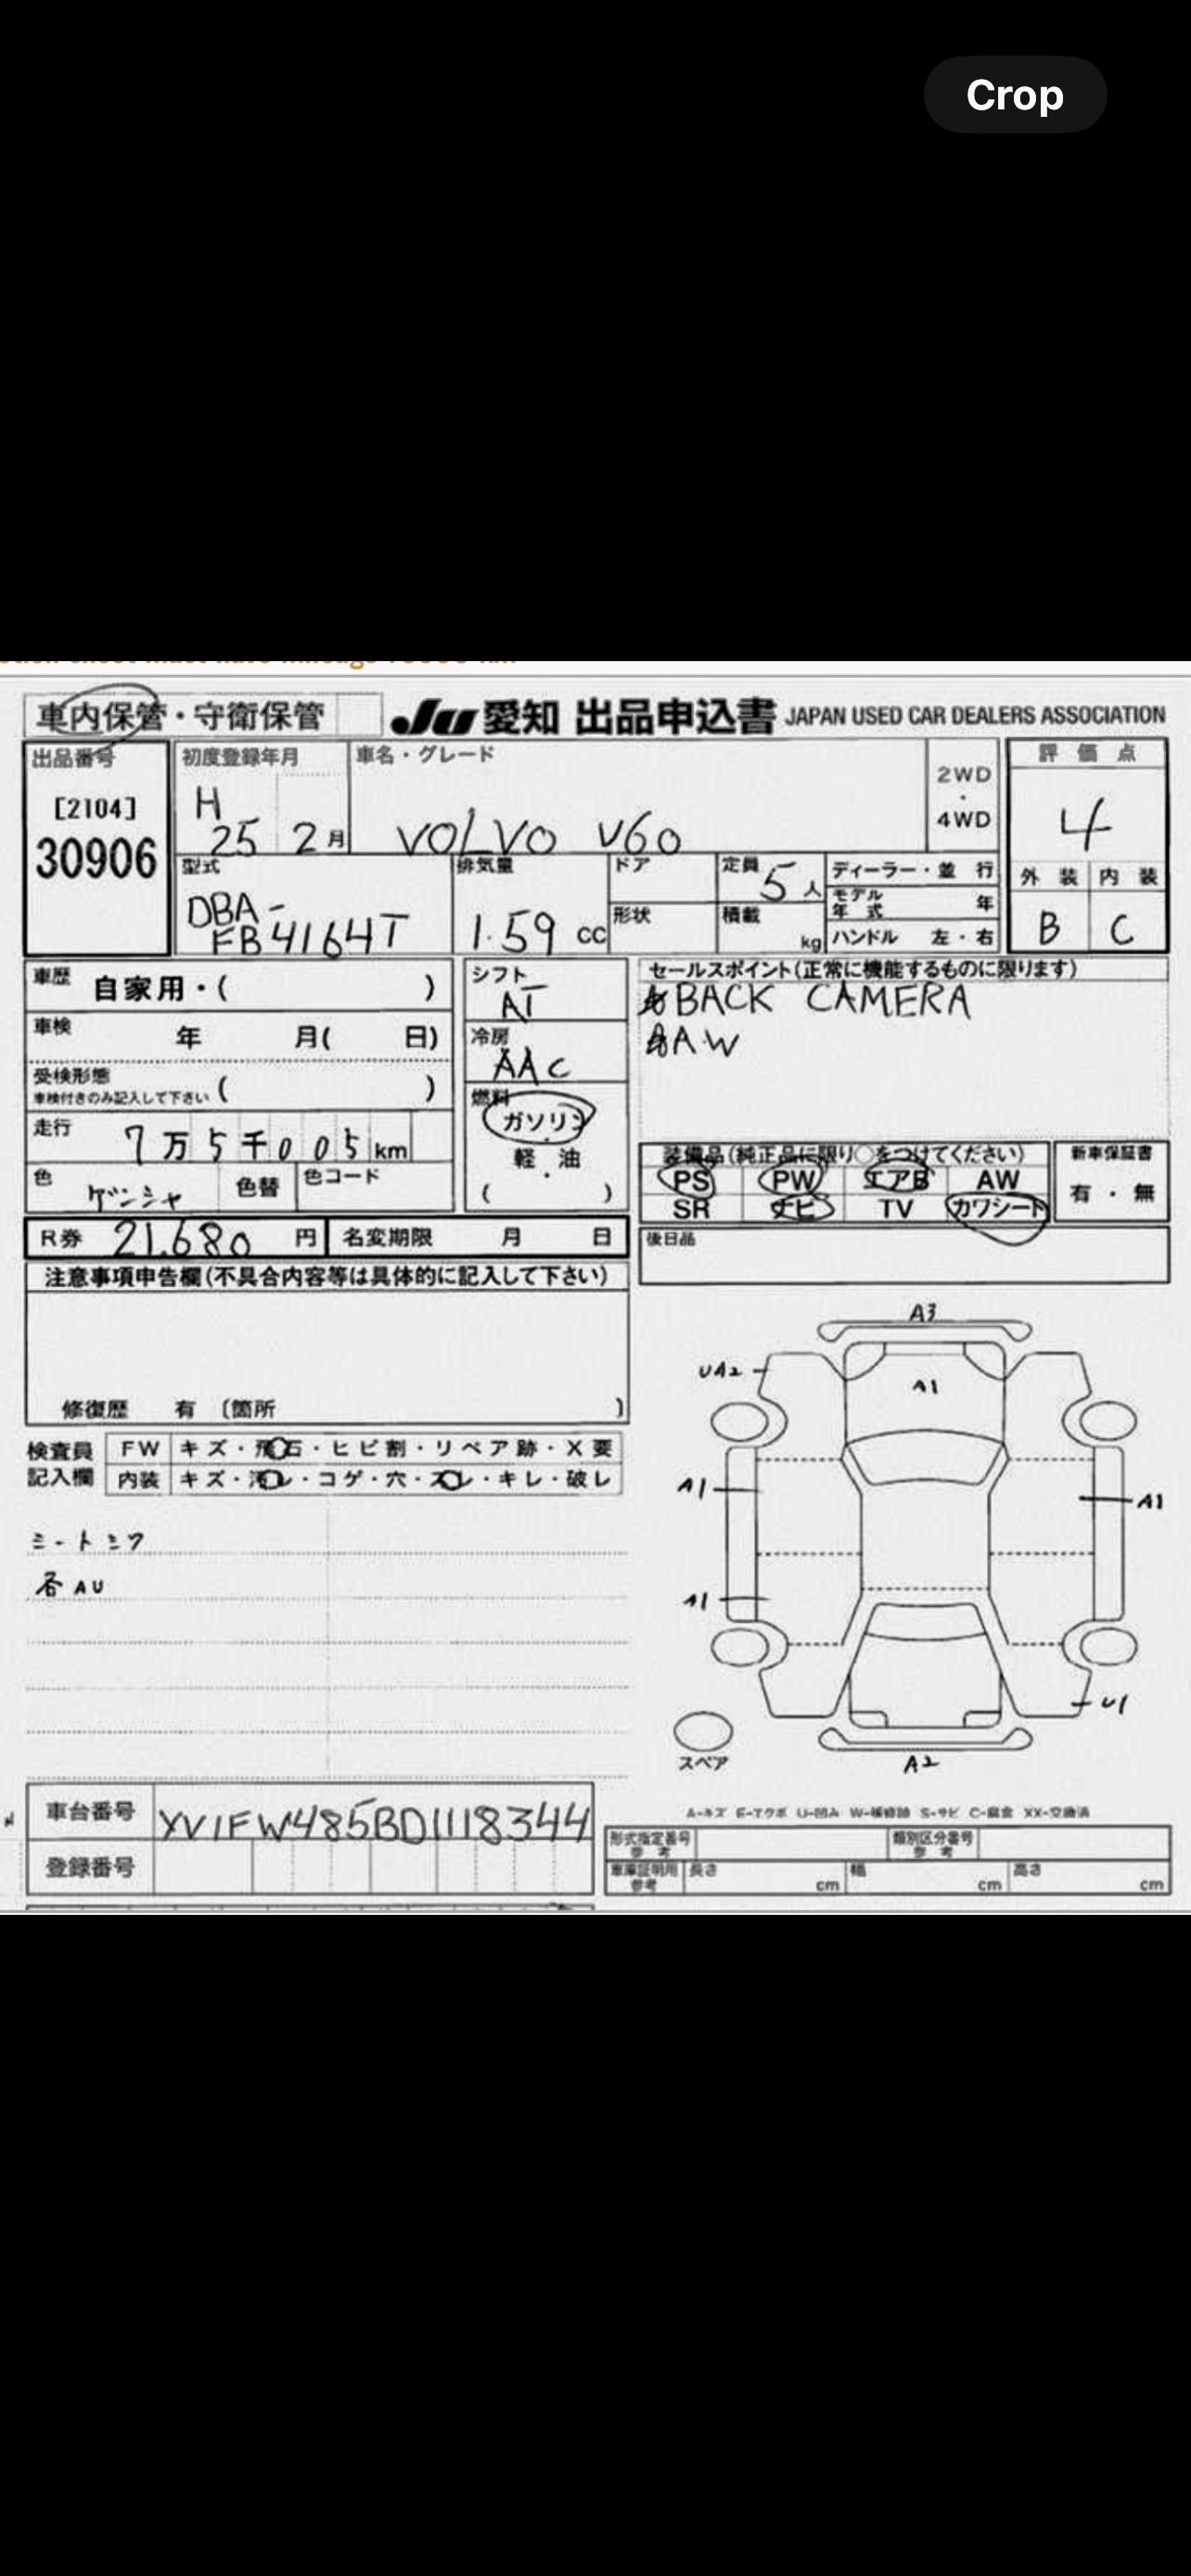 Crop
車内保管・守衛保管
JU 愛知 出品申込書 JAPAN USED CAR DEALERS ASSOCIATION
出品番号 初度登録年月 車名・グレード 2WD・4WD 評価点
[2104]
30906
H 25 2月 VOLVO V60 4
型式 排気量 ドア 定員 5人 ディーラー・並行 外装 内装
DBA-
FB4164T 1.59 cc 形状 積載 kg モデル年式 年 B C
ハンドル 左・右
車歴 自家用・( ) シフト AT セールスポイント(正常に機能するものに限ります)
BACK CAMERA
車検 年 月( 日) 冷房 AAC AW
受検形態 ( ) 燃料 ガソリン・軽油・( )
車検付きのみ記入して下さい
走行 7万5千005km 装備品(純正品に限り○をつけてください) 新車保証書
色 色替 色コード PS PW エアB AW 有・無
SR ナビ TV カワシート
R券 21.680 円 名変期限 月 日 後日品
注意事項申告欄(不具合内容等は具体的に記入して下さい)
修復歴 有 〔箇所 〕
検査員 FW キズ・飛石・ヒビ割・リペア跡・X要
記入欄 内装 キズ・汚レ・コゲ・穴・スレ・キレ・破レ
各AU
A3
UA2
A1
A1
A1
A1
U1
スペア
A2
A-キズ E-エクボ U-凹み W-補修跡 S-サビ C-腐食 XX-交換済
車台番号 YV1FW485BD1118344
登録番号
形式指定番号 参考 類別区分番号 参考
車庫証明用 参考 長さ cm 幅 cm 高さ cm